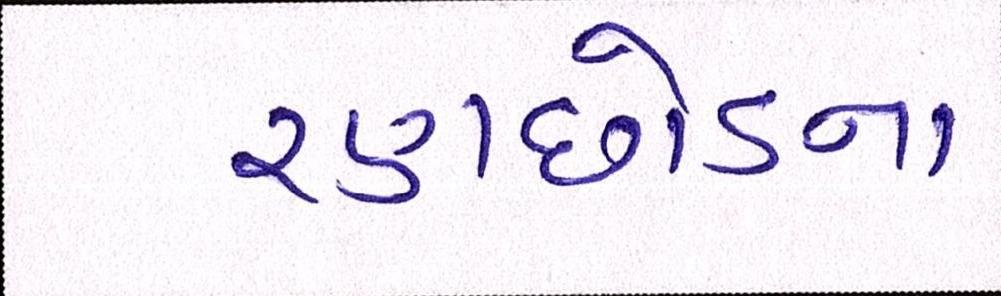 રણછોડના